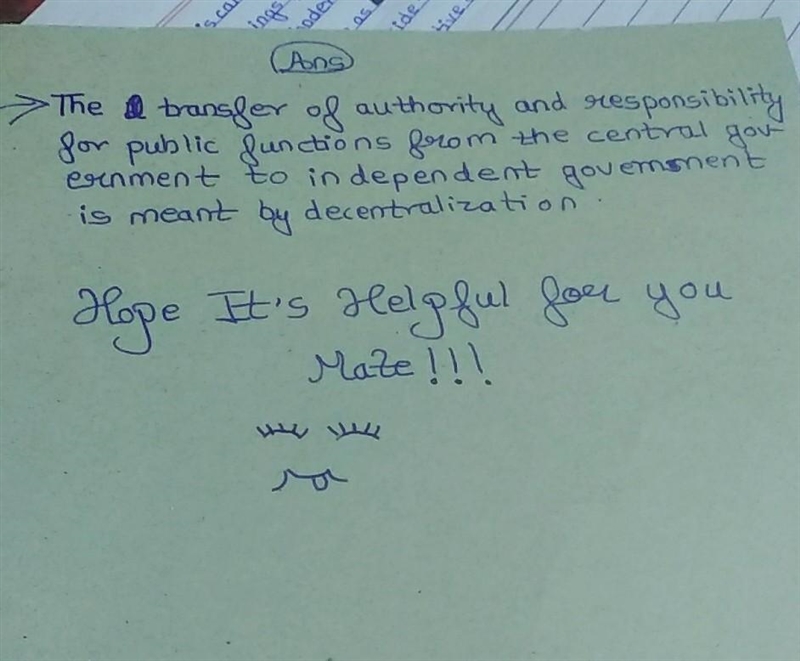 Ans
→ The transfer of authority and responsibility
for public functions from the central gov-
ernment to independent government
is meant by decentralization.
Hope It's Helpful for you
Mate!!!